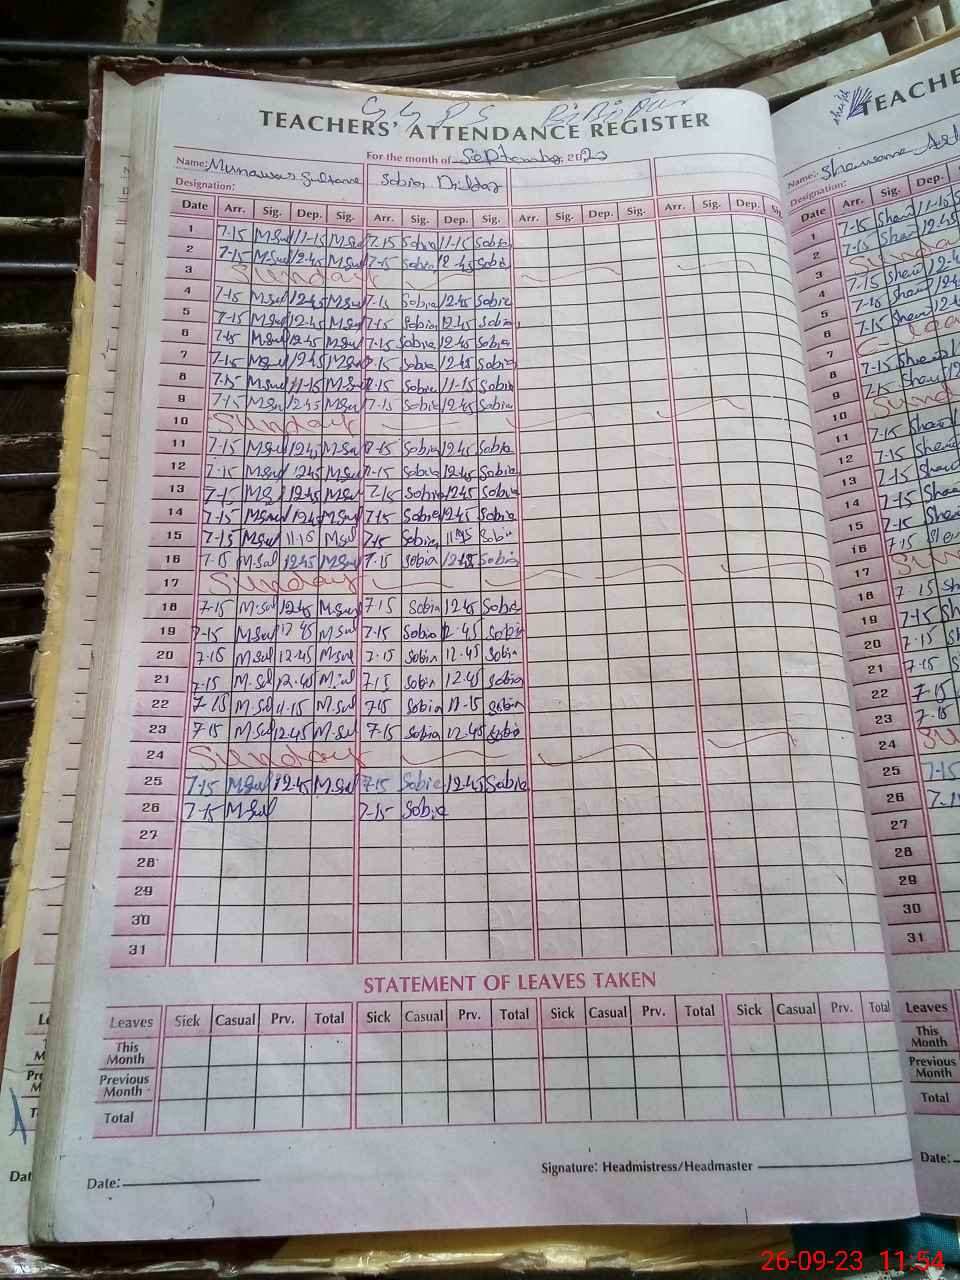 G G P S BiBiPur
TEACHERS' ATTENDANCE REGISTER
For the month of September 2023
Name: Munawar Sultana Sobia Dildar
Designation:
Date Arr. Sig. Dep. Sig. Arr. Sig. Dep. Sig. Arr. Sig. Dep. Sig. Arr. Sig. Dep. Sig.
1 7-15 M.Sul 11-15 M.Sul 7-15 Sobia 11-15 Sobia
2 7-15 M.Sul 12.45 M.Sul 7-15 Sobia 12-45 Sobia
3 Sunday
4 7-15 M.Sul 12.45 M.Sul 7-15 Sobia 12.45 Sobia
5 7-15 M.Sul 12.45 M.Sul 7-15 Sobia 12.45 Sobia
6 7-15 M.Sul 12.45 M.Sul 7-15 Sobia 12.45 Sobia
7 7-15 M.Sul 12.45 M.Sul 7-15 Sobia 12.45 Sobia
8 7-15 M.Sul 11-15 M.Sul 7-15 Sobia 11-15 Sobia
9 7-15 M.Sul 12.45 M.Sul 7-15 Sobia 12.45 Sobia
10 Sunday
11 7-15 M.Sul 12.45 M.Sul 7-15 Sobia 12.45 Sobia
12 7-15 M.Sul 12.45 M.Sul 7-15 Sobia 12.45 Sobia
13 7-15 M.S 12.45 M.Sul 7-15 Sobia 12.45 Sobia
14 7-15 M.Sul 12.45 M.Sul 7-15 Sobia 12.45 Sobia
15 7-15 M.Sul 11-15 M.Sul 7-15 Sobia Sobia
16 7-15 M.Sul 12.45 M.Sul 7-15 Sobia 12.45 Sobia
17 Sunday
18 7-15 M.Sul 12.45 M.Sul 7-15 Sobia 12.45 Sobia
19 7-15 M.Sul 12.45 M.Sul 7-15 Sobia 12.45 Sobia
20 7-15 M.Sul 12-45 M.Sul 7-15 Sobia 12-45 Sobia
21 7-15 M.Sul 12.45 M.Sul 7-15 Sobia 12.45 Sobia
22 7-15 M.Sul 11-15 M.Sul 7-15 Sobia 11-15 Sobia
23 7-15 M.Sul 12.45 M.Sul 7-15 Sobia 12.45 Sobia
24 Sunday
25 7-15 M.Sul 12.45 M.Sul 7-15 Sobia 12.45 Sobia
26 7-15 M.Sul 7-15 Sobia
27
28
29
30
31
STATEMENT OF LEAVES TAKEN
Leaves Sick Casual Prv. Total Sick Casual Prv. Total Sick Casual Prv. Total Sick Casual Prv. Total
This Month
Previous Month
Total
Signature: Headmistress/Headmaster
Date:
TEACHE
Name:
Designation:
Date Arr. Sig. Dep.
1 7-15 11-15
2 7-15 12.45
3 Sunday
4 7-15
5 7-15
6 7-15
7
8 7-15
9 7-15
10 Sund
11 7-15
12 7-15
13 7-15
14 7-15
15 7-15
16 7-15
17 Sun
18 7-15
19 7-15
20 7-15
21 7-15
22 7-15
23 7-15
24
25 7-15
26
27
28
29
30
31
Leaves
This Month
Previous Month
Total
Date:
26-09-23 11:54